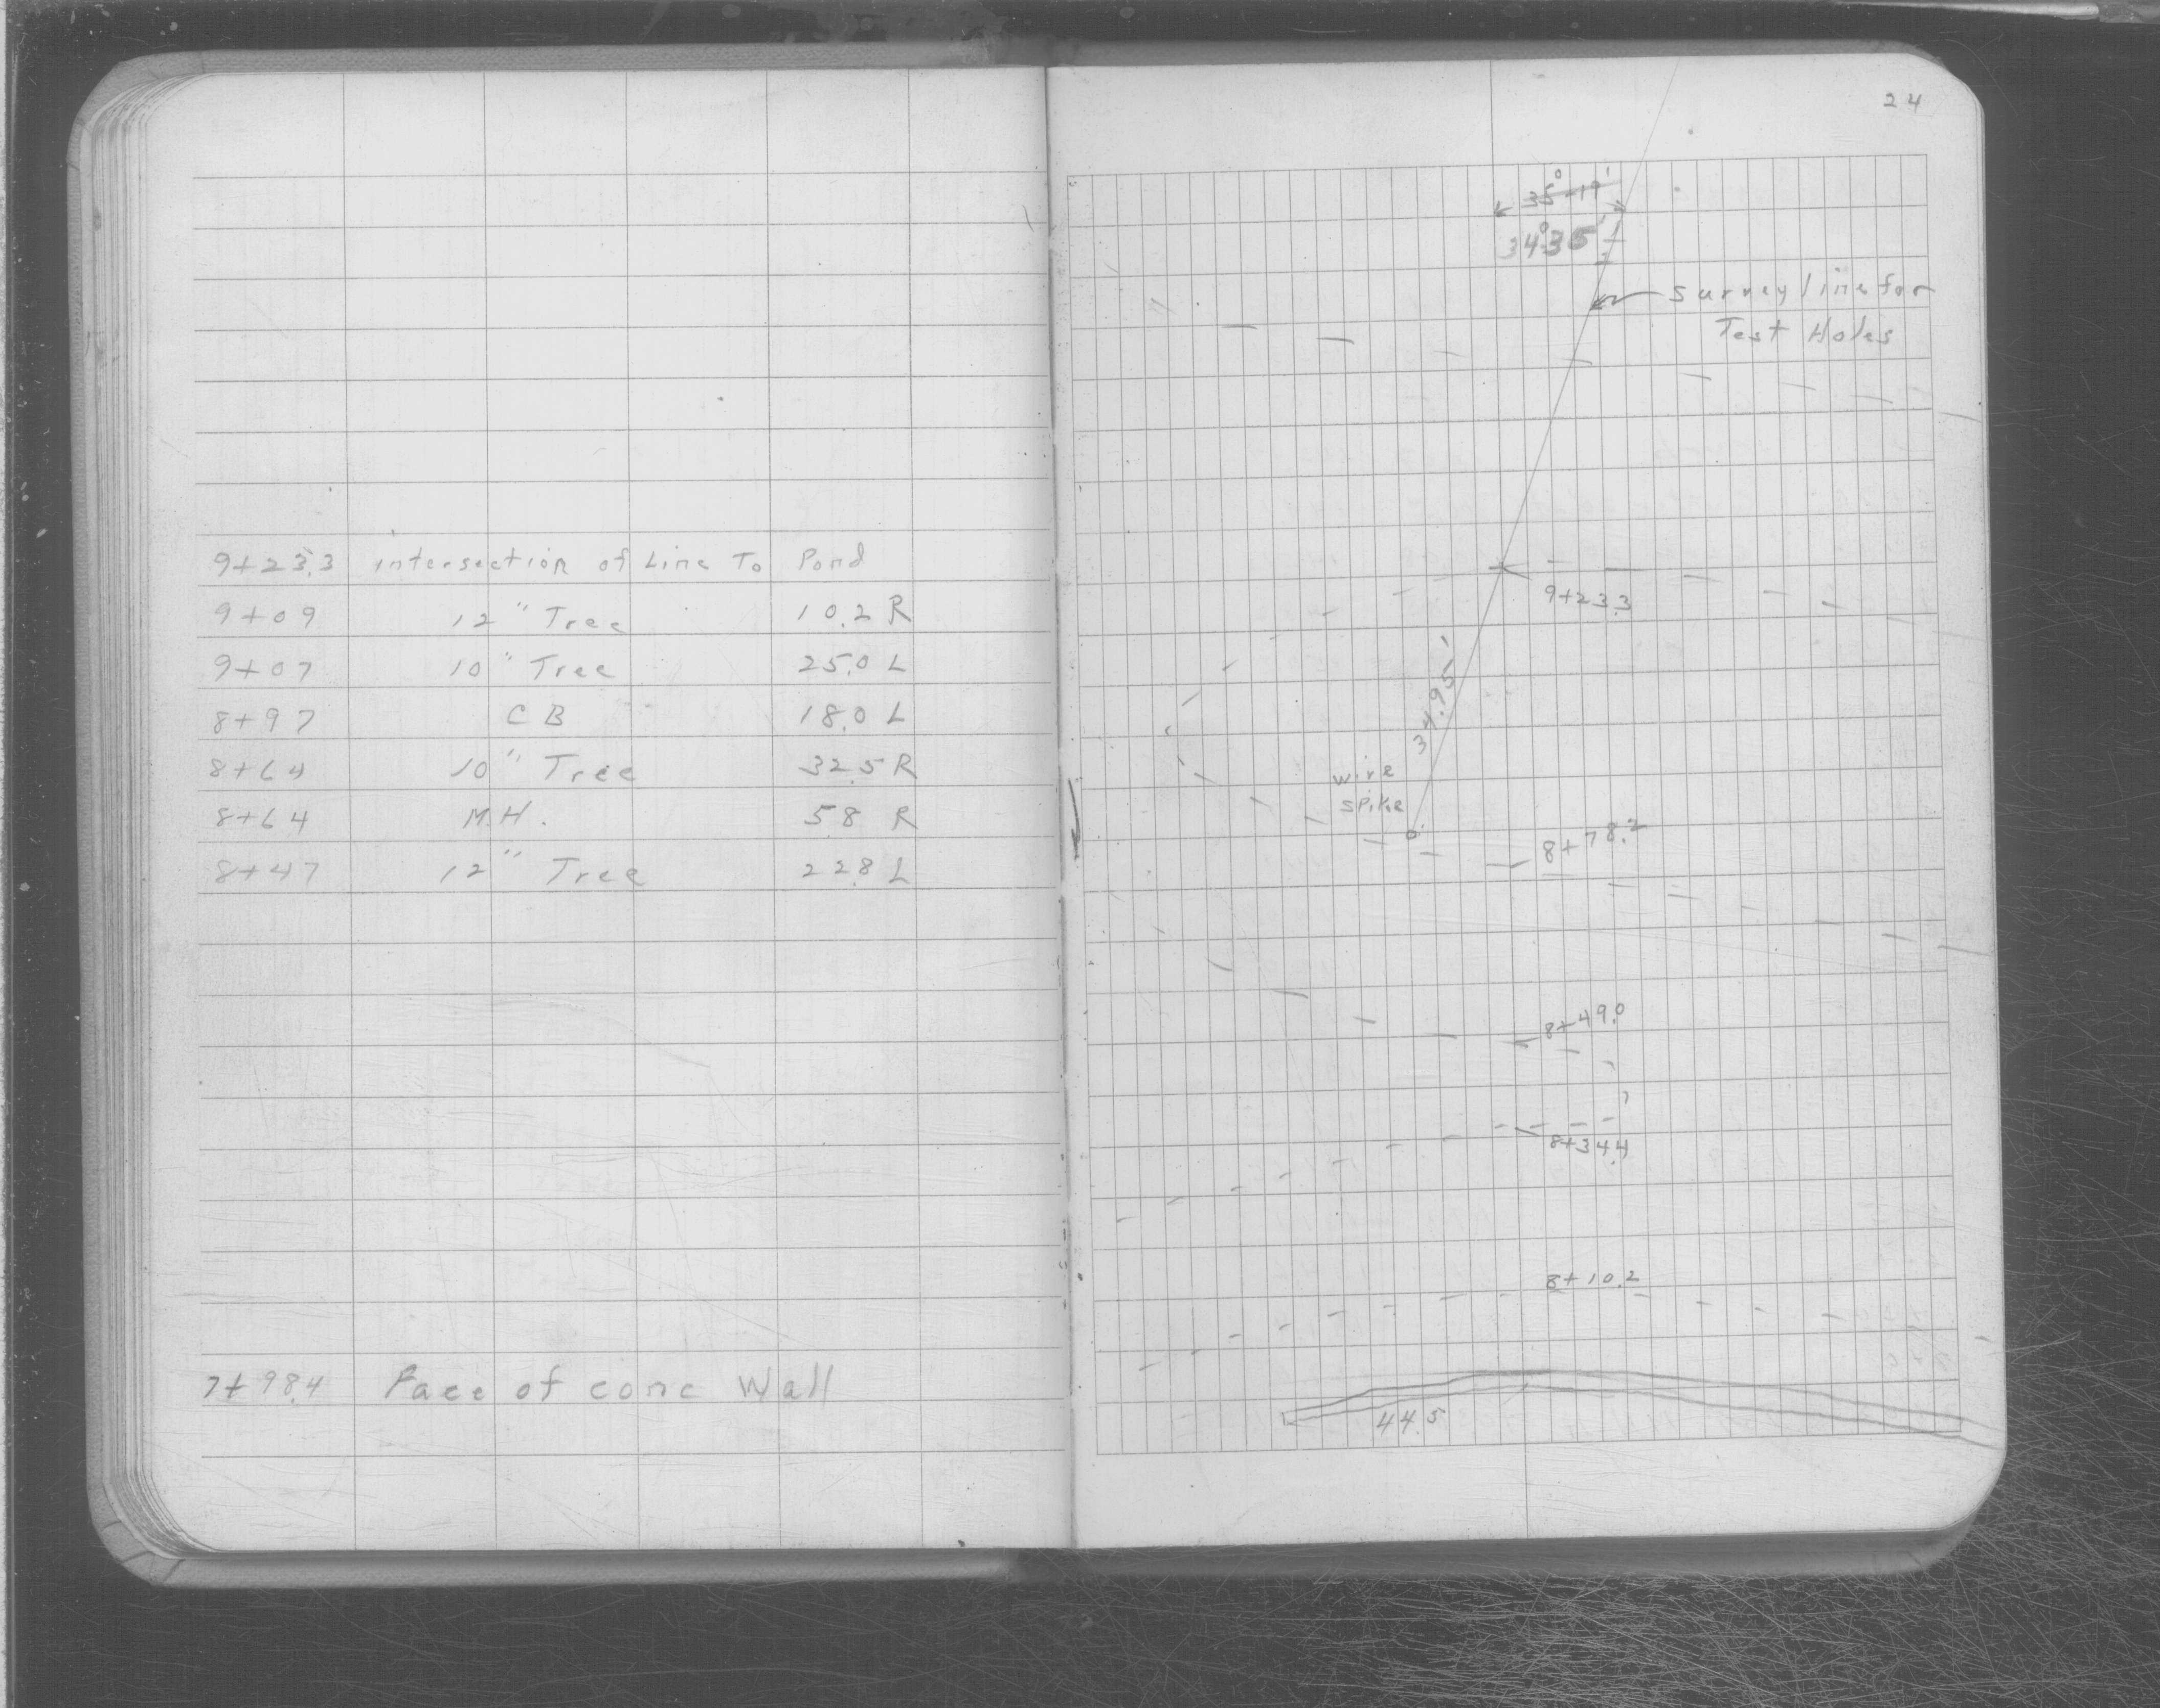 9+23.3 intersection of Line To Pond
9+09 12" Tree 10.2 R
9+07 10" Tree 25.0 L
8+97 CB 18.0 L
8+64 10" Tree 32.5 R
8+64 M.H. 58 R
8+47 12" Tree 22.8 L
7+98.4 Face of conc Wall
24
34°35'½
Survey line for
Test Holes
9+23.3
34.95'
wire
spike
8+78.2
8+49.0
8+34.4
8+10.2
44.5